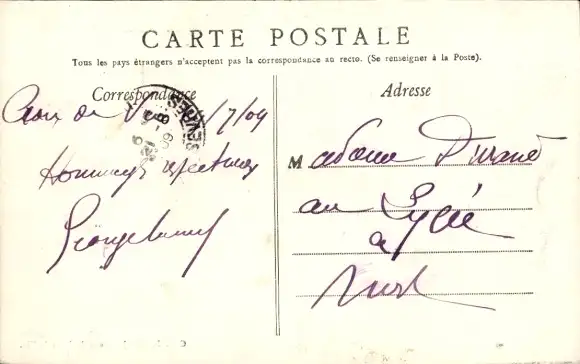 CARTE POSTALE
Tous les pays étrangers n'acceptent pas la correspondance au recto. (Se renseigner à la Poste).
Correspondance
Adresse
Croix de /7/09
Hommages respectueux
Madame Durand
au Lycée
à
Niort